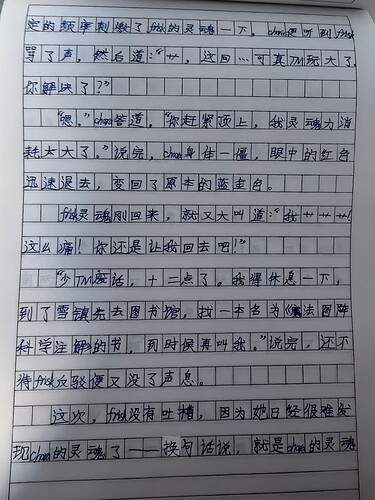 定的频率刺激了frisk的灵魂一下。chara便听到frisk
骂了声，然后道：“艹，这回…可真TM玩大了，
你解决了？”
“恩。”chara答道，“你赶紧顶上，我灵魂力消
耗太大了。”说完，chara身体一僵，眼中的红色
迅速退去，变回了原本的蓝金色。
frisk灵魂刚回来，就又大叫道：“我艹艹艹！
这么痛！你还是让我回去吧！”
“少TM废话，十二点了。我得休息一下，
到了雪镇先去图书馆，找一本名为《魔法图阵
科学注解》的书，到时候再叫我。”说完，还不
待frisk反驳便又没了声息。
这次，frisk没有吐槽，因为她已经很难发
现chara的灵魂了——换句话说，就是chara的灵魂